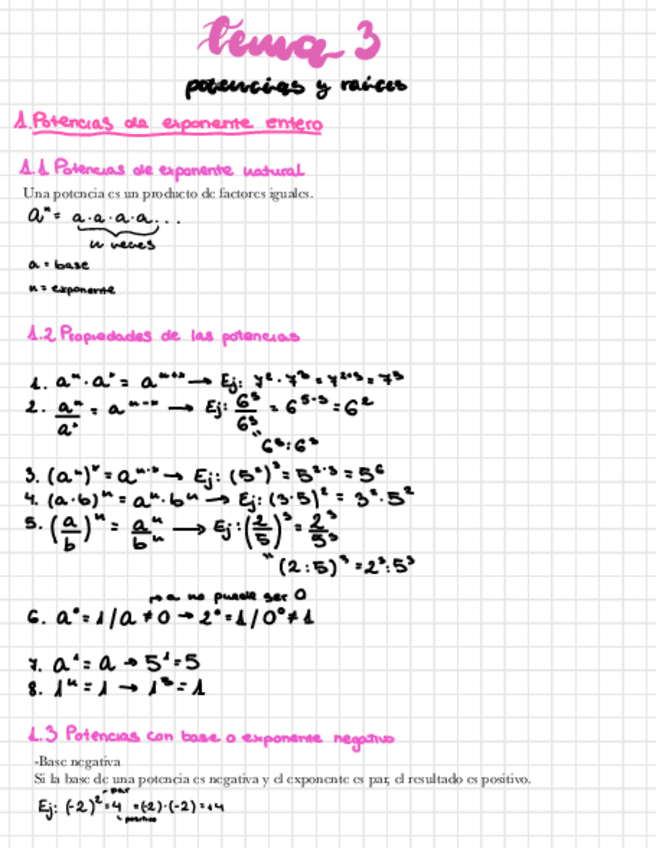 tema 3
potencias y raíces
1. Potencias de exponente entero
1.1 Potencias de exponente natural
Una potencia es un producto de factores iguales.
aⁿ = a·a·a·a...
n veces
a = base
n = exponente
1.2 Propiedades de las potencias
1. aⁿ · aʳ = aⁿ⁺ʳ → Ej: 7² · 7³ = 7²⁺³ = 7⁵
2. aⁿ/aʳ = aⁿ⁻ʳ → Ej: 6⁵/6³ = 6⁵⁻³ = 6²
" 6⁵:6³
3. (aⁿ)ʳ = aⁿ·ʳ → Ej: (5²)³ = 5²·³ = 5⁶
4. (a·b)ⁿ = aⁿ·bⁿ → Ej: (3·5)² = 3²·5²
5. (a/b)ⁿ = aⁿ/bⁿ → Ej: (2/5)³ = 2³/5³
" (2:5)³ = 2³:5³
→ a no puede ser 0
6. a⁰ = 1 / a ≠ 0 → 2⁰ = 1 / 0⁰ ≠ 1
7. a¹ = a → 5¹ = 5
8. 1ⁿ = 1 → 1³ = 1
1.3 Potencias con base o exponente negativo
-Base negativa
Si la base de una potencia es negativa y el exponente es par, el resultado es positivo.
→ par
Ej: (-2)² = 4 = (-2)·(-2) = +4
positivo